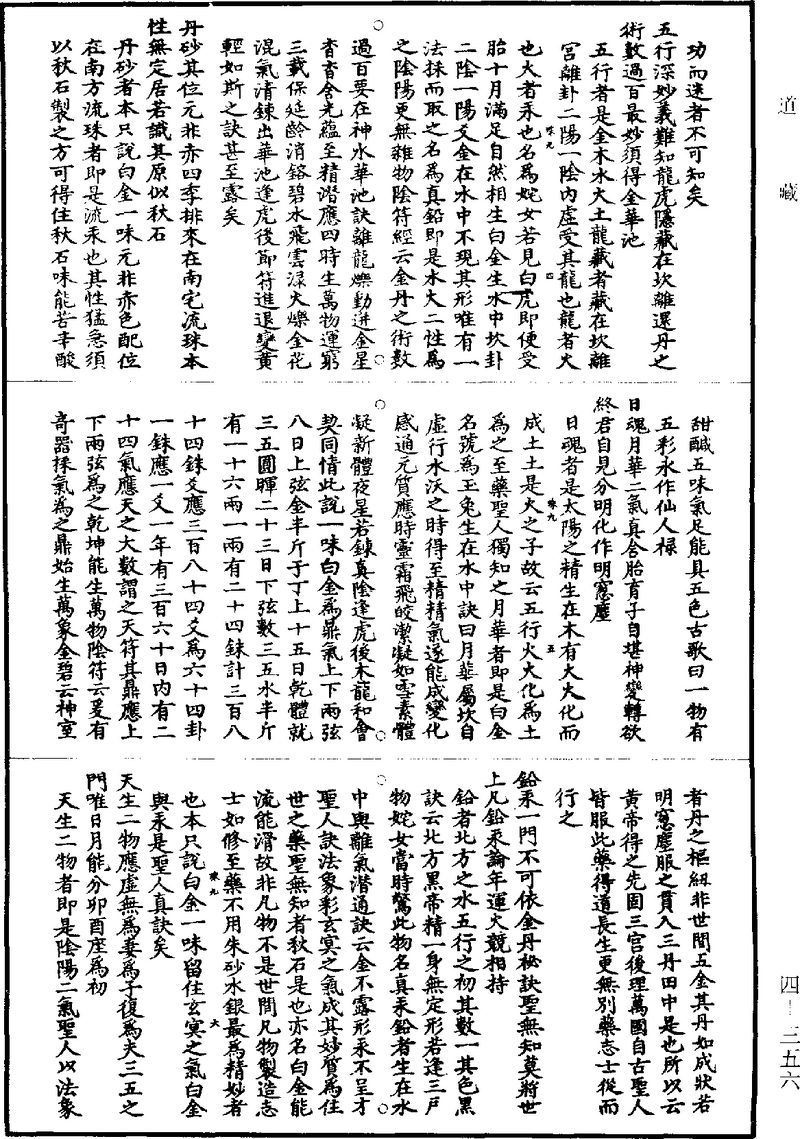 道藏
功而迷者不可知矣
五行深妙義難知龍虎隱藏在坎離還丹之
術數過百最妙須得金華池
五行者是金木水火土龍藏者藏在坎離
宮離卦二陽一陰內虛受其龍也龍者火
也火者汞也名為姹女若見白虎即便受
胎十月滿足自然相生白金生水中坎卦
二陰一陽爻金在水中不現其形唯有一
法採而取之名為真鉛即是水火二性為
之陰陽更無雜物陰符經云金丹之術數
過百要在神水華池訣離龍爍動迸金星
杳杳含光蘊至精潛應四時生萬物運窮
三載保延齡消鎔碧水飛雲淥火爍金花
混氣清鍊出華池逢虎後節符進退變黃
輕如斯之訣甚至露矣
丹砂其位元非赤四季排來在南宅流珠本
性無定居若識其原似秋石
丹砂者本只說白金一味元非赤色配位
在南方流珠者即是流汞也其性猛急須
以秋石製之方可得住秋石味能苦辛酸
甜鹹五味氣足能具五色古歌曰一物有
五彩永作仙人祿
日魂月華二氣真含胎育子自堪神變轉欲
終君自見分明化作明窻塵
日魂者是太陽之精生在木有火火化而
成土土是火之子故云五行火火化為土
為之至藥聖人獨知之月華者即是白金
名號為玉兔生在水中訣曰月華屬坎自
虛行水沃之時得至精精氣逐能成變化
感通元質應時靈霜飛皎潔凝如雪素體
凝新體夜星若鍊真陰逢虎後木龍和會
契同情此說一味白金為鼎氣上下兩弦
八日上弦金半斤于丁上十五日乾體就
三五圓暉二十三日下弦數三五水半斤
有一十六兩一兩有二十四銖計三百八
十四銖爻應三百八十四爻為六十四卦
一銖應一爻一年有三百六十日內有二
十四氣應天之大數謂之天符其鼎應上
下兩弦為之乾坤能生萬物陰符云爰有
奇器採氣為之鼎始生萬象金碧云神室
者丹之樞紐非世間五金其丹如成狀若
明窻塵服之貫入三丹田中是也所以云
黃帝得之先固三宮後理萬國自古聖人
皆服此藥得道長生更無別藥志士從而
行之
鉛汞一門不可依金丹秘訣聖無知莫將世
上凡鉛汞論年運火競相持
鉛者北方之水五行之初其數一其色黑
訣云北方黑帝精一身無定形若逢三戶
物姹女當時驚此物名真汞鉛者生在水
中與離氣潛通訣云金不露形汞不呈才
聖人訣法象彩玄冥之氣成其妙質為住
世之藥聖無知者秋石是也亦名白金能
流能滑故非凡物不是世間凡物製造志
士如修至藥不用朱砂水銀最為精妙者
也本只說白金一味留住玄冥之氣白金
與汞是聖人真訣矣
天生二物應虛無為妻為子復為夫三五之
門唯日月能分卯酉座為初
天生二物者即是陰陽二氣聖人以法象
四-三五六